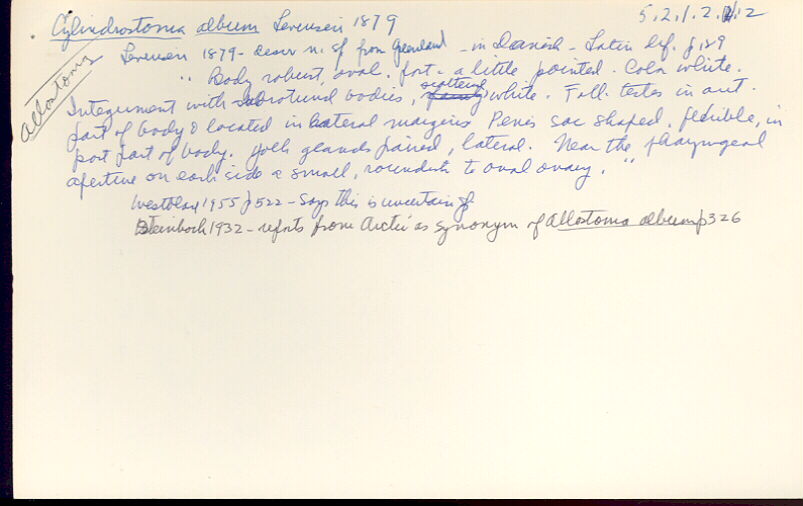 Cylindrostoma album Levensen 1879 5.2.1.2.12
Allostoma
Levensen 1879 - descr n. sp from Greenland - in Danish - Latin def. p 189
" Body robust, oval, front - a little pointed. Color white.
Integument with subrotund bodies, scattered, white. Foll. testes in ant.
part of body & located in lateral margins Penis sac shaped, flexible, in
post part of body. Yolk glands paired, lateral. Near the pharyngeal
aperture on each side a small, roundish to oval ovary. "
Westblad 1955 p 522 - Says this is uncertain sp
Steinboch 1932 - reports from Arctic as synonym of Allostoma album p 326